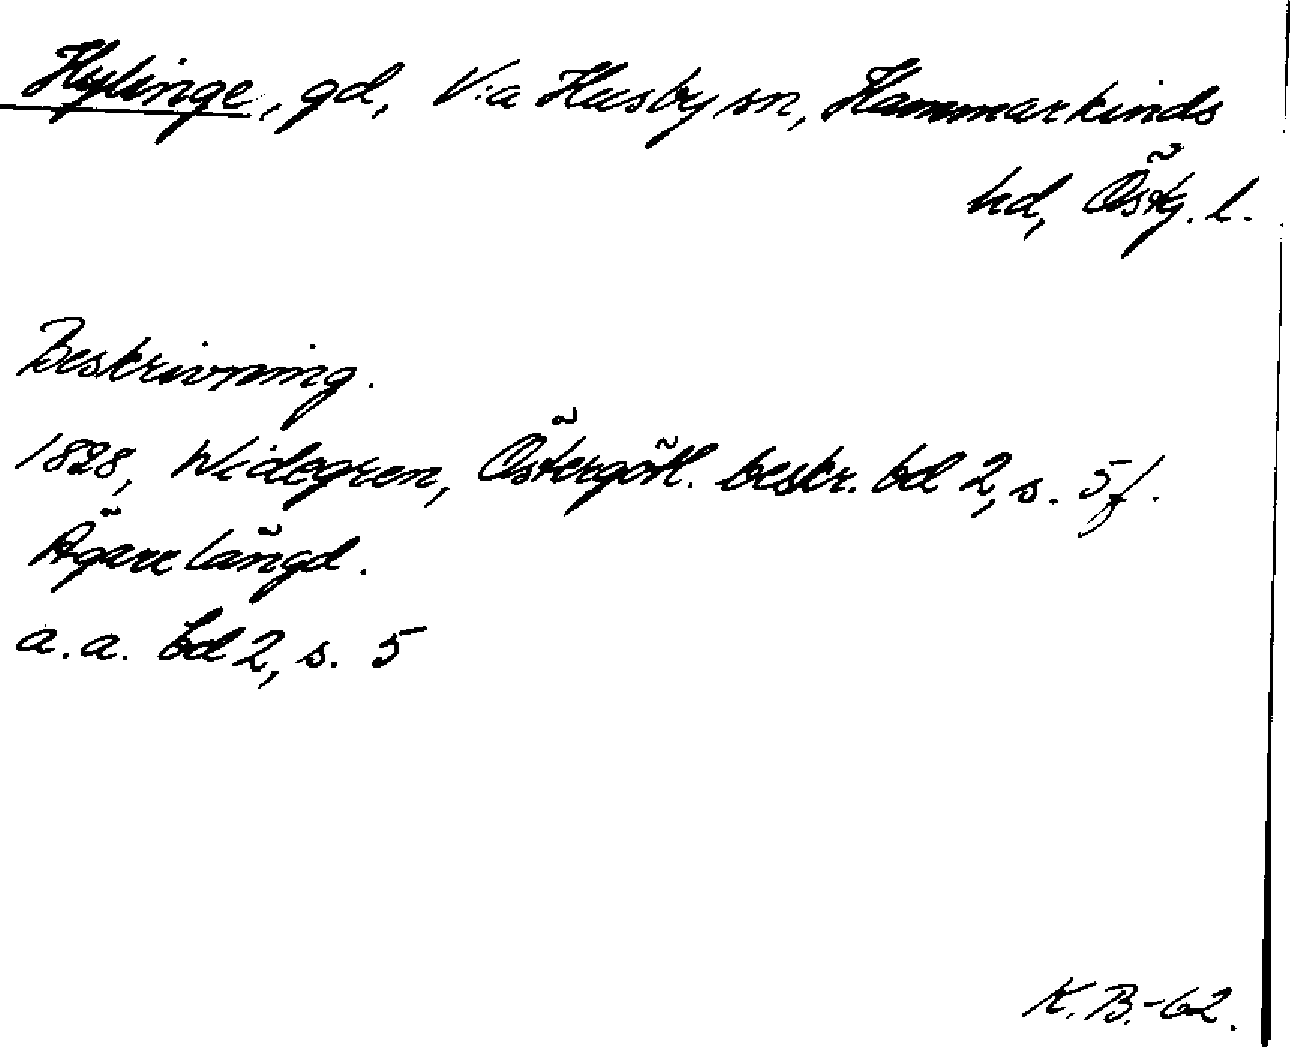 Hylinge, gd, V:a Husby sn, Hammarkinds
hd, Östg. l.
Beskrivning.
1828, Widegren, Östergötl. beskr. bd 2, s. 5f.
Ägarelängd.
a.a. bd 2, s. 5
K.B.-62.